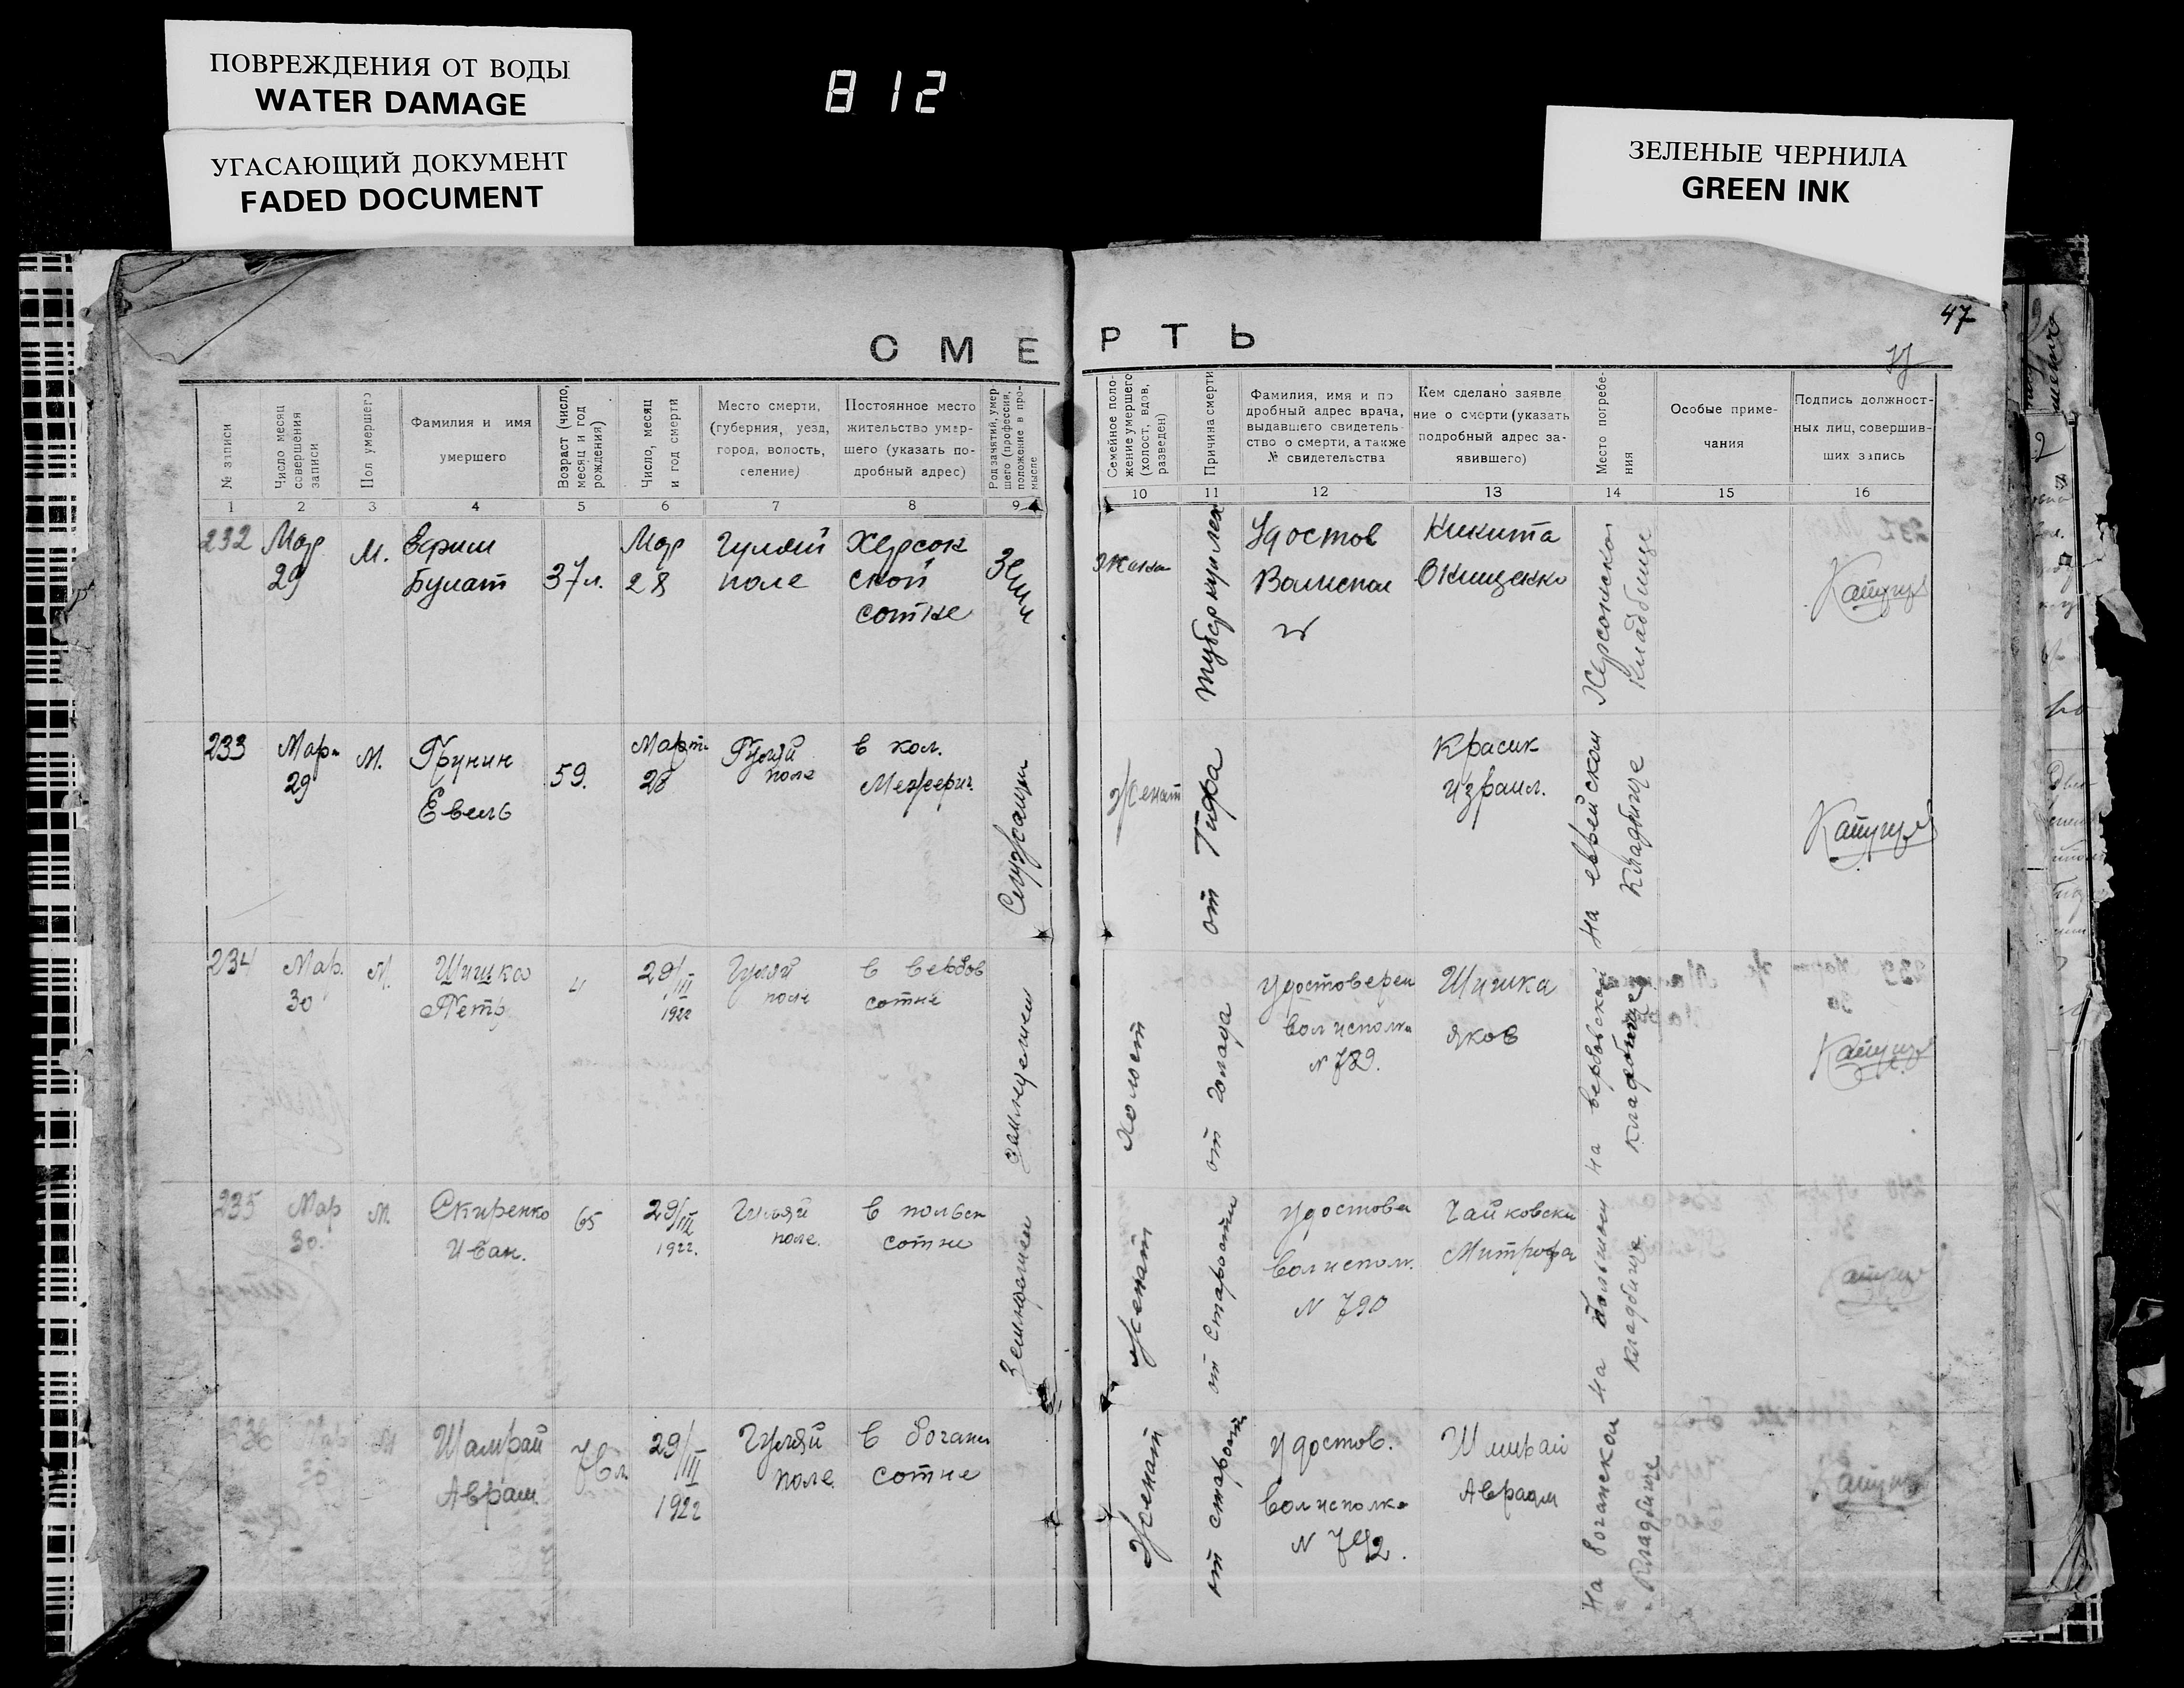 ПОВРЕЖДЕНИЯ ОТ ВОДЫ
WATER DAMAGE
УГАСАЮЩИЙ ДОКУМЕНТ
FADED DOCUMENT
812
ЗЕЛЕНЫЕ ЧЕРНИЛА
GREEN INK
47
СМЕРТЬ
№ записи
Число месяц
совершения
записи
Пол умершего
Фамилия и имя
умершего
Возраст (число,
месяц и год
рождения)
Число, месяц
и год смерти
Место смерти,
(губерния, уезд,
город, волость,
селение)
Постоянное место
жительство умер-
шего (указать по-
дробный адрес)
Род занятий, умер-
шего (профессия,
положение в про-
мысле
Семейное поло-
жение умершего
(холост, вдов,
разведен)
Причина смерти
Фамилия, имя и по
дробный адрес врача,
выдавшего свидетель-
ство о смерти, а также
№ свидетельства
Кем сделано заявле
ние о смерти (указать
подробный адрес за-
явившего)
Место погребе-
ния
Особые приме-
чания
Подпись должност-
ных лиц, совершив-
ших запись
1 2 3 4 5 6 7 8 9 10 11 12 13 14 15 16
232
Мар
29
М.
Булат
37 л.
Мар
28
Гуляй
поле
Херсон
ской
сотне
Удостов
Никита
Онищенко
Херсонском
кладбище
233
Мар
29
М.
Грунин
Евель
59.
Март
28
Гуляй
поле
в кол.
Межерич.
Служащий
Женат
от Тифа
Красик
Израил.
На еврейском
кладбище
234
Мар.
30
М.
Шишка
Петр
29/III
1922
Гуляй
поле
в вербов
сотне
Холост
от голода
Удостоверен
волисполк
N 789.
Шишка
Яков
На вербовском
кладбище
235
Мар
30.
М.
Скиренко
Иван.
65
29/III
1922.
Гуляй
поле.
в польск
сотне
Женат
от старости
Удостовер
волисполк.
N 790
Чайковски
Митрофа
На польском
кладбище
236
Мар
30
М
Шамрай
Аврам.
29/III
1922
Гуляй
поле.
в
сотне
Женат
от старости
Удостов.
волисполко
N 792.
Аврам
На
кладбище